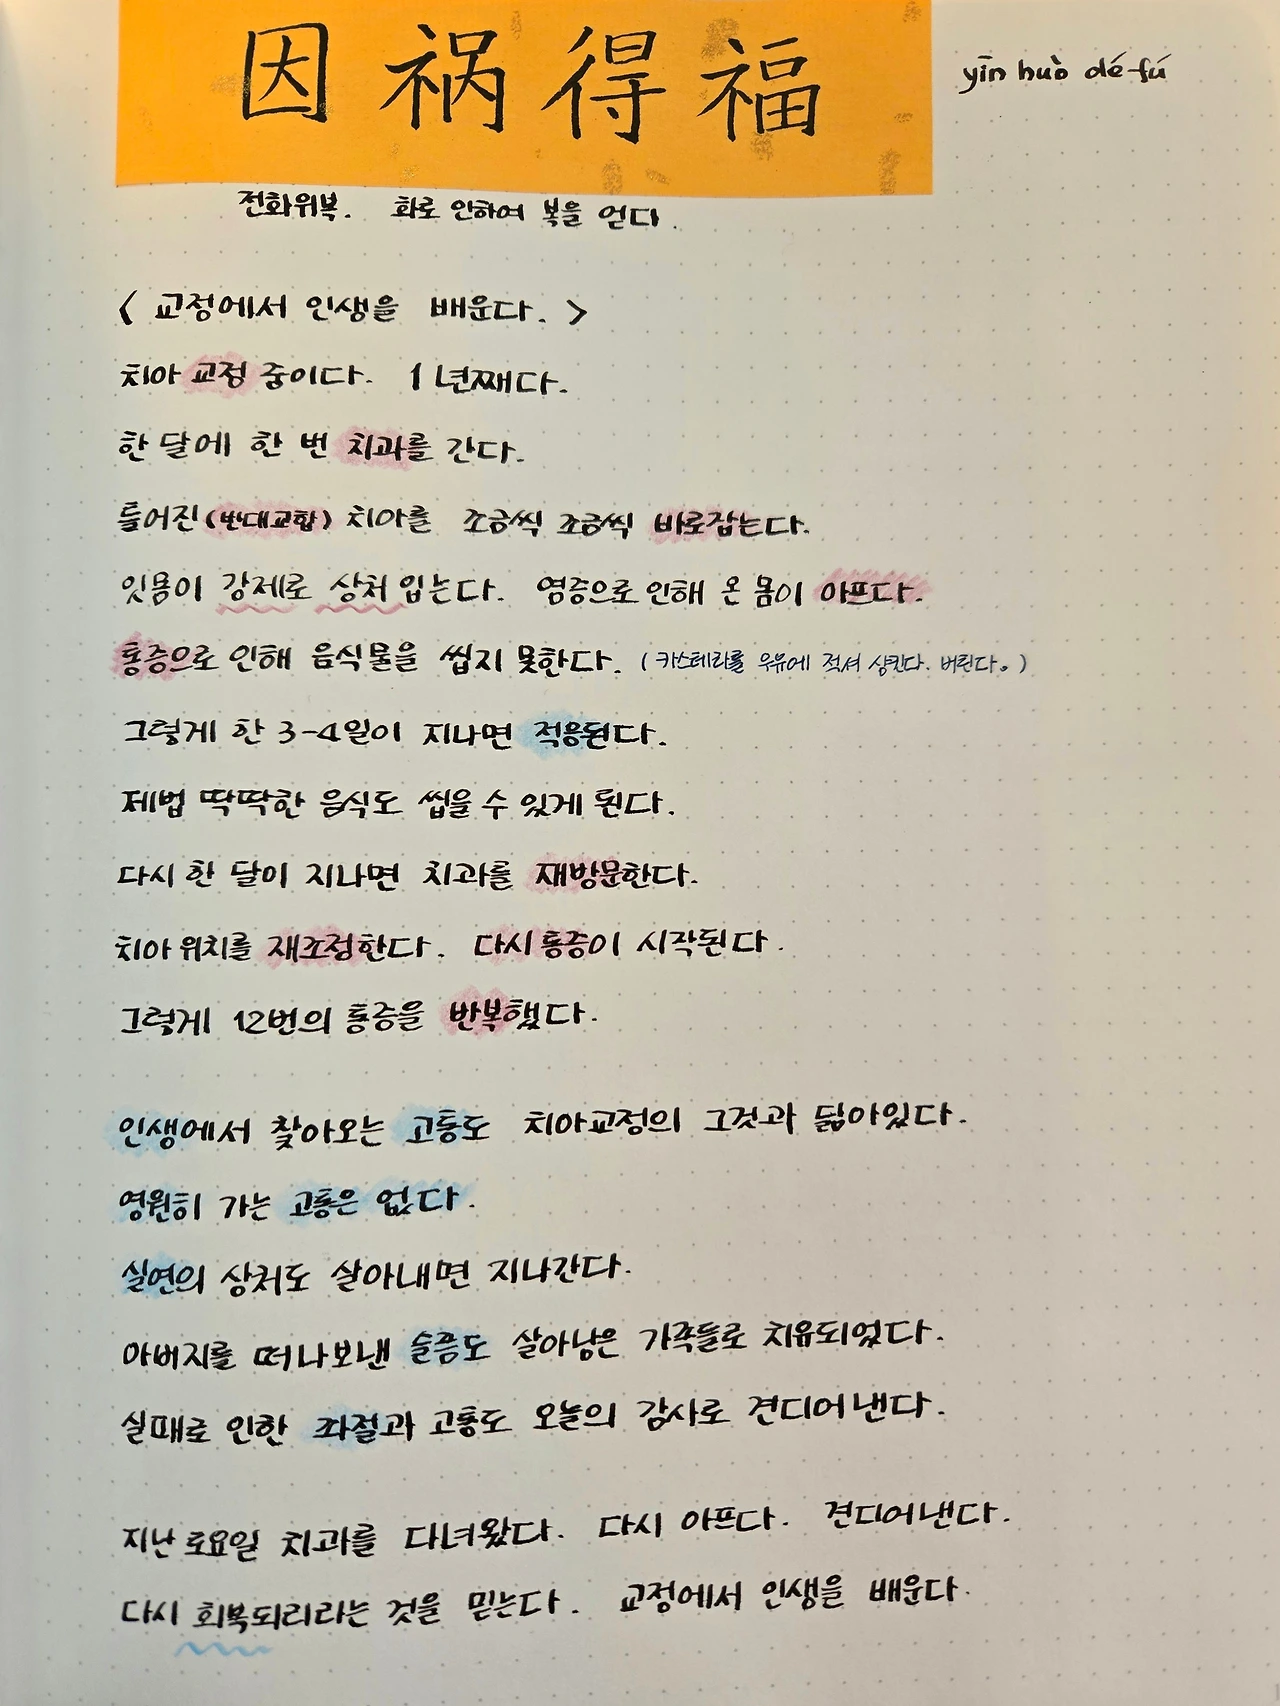 因祸得福
yīn huò dé fú
전화위복. 화로 인하여 복을 얻다.
< 교정에서 인생을 배운다. >
치아 교정 중이다. 1년째다.
한 달에 한 번 치과를 간다.
틀어진(반대교합) 치아를 조금씩 조금씩 바로잡는다.
잇몸이 강제로 상처 입는다. 염증으로 인해 온 몸이 아프다.
통증으로 인해 음식물을 씹지 못한다. (카스테라를 우유에 적셔 삼킨다. 버린다.)
그렇게 한 3-4일이 지나면 적응된다.
제법 딱딱한 음식도 씹을 수 있게 된다.
다시 한 달이 지나면 치과를 재방문한다.
치아 위치를 재조정한다. 다시 통증이 시작된다.
그렇게 12번의 통증을 반복했다.
인생에서 찾아오는 고통도 치아교정의 그것과 닮아있다.
영원히 가는 고통은 없다.
실연의 상처도 살아내면 지나간다.
아버지를 떠나보낸 슬픔도 살아남은 가족들로 치유되었다.
실패로 인한 좌절과 고통도 오늘의 감사로 견디어낸다.
지난 토요일 치과를 다녀왔다. 다시 아프다. 견디어낸다.
다시 회복되리라는 것을 믿는다. 교정에서 인생을 배운다.